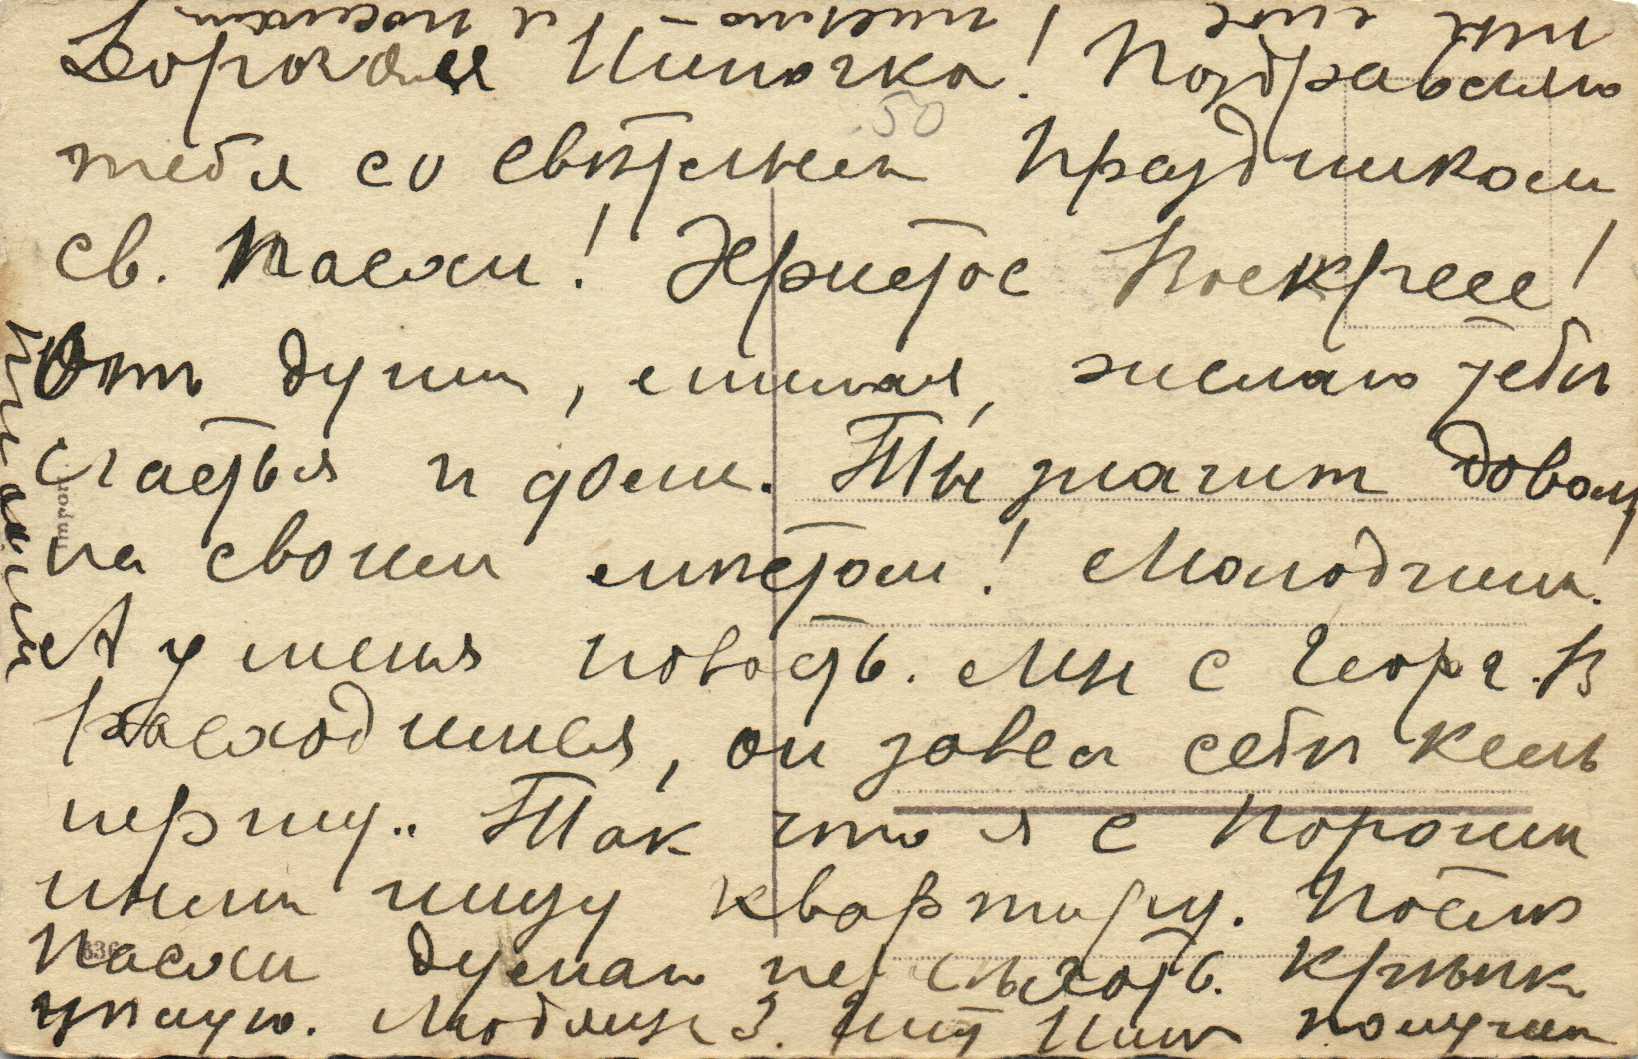 Дорогая Ниночка! Поздравляю
тебя со светлым праздником
св. Пасхи! Христос Воскресе!
Отъ души, милая, желаю тебѣ
счастья и
Ты значит довол
на своим мѣстом! Молодчина!
А у меня новость. Мы с Георг. В
расходимся, он завел себѣ кель
нершу.. Так что я с
ищу квартиру. Послѣ
Пасхи думаю переѣхать. Крѣпко
цѣлую. Любящая З. получила
ты мое письмо
50